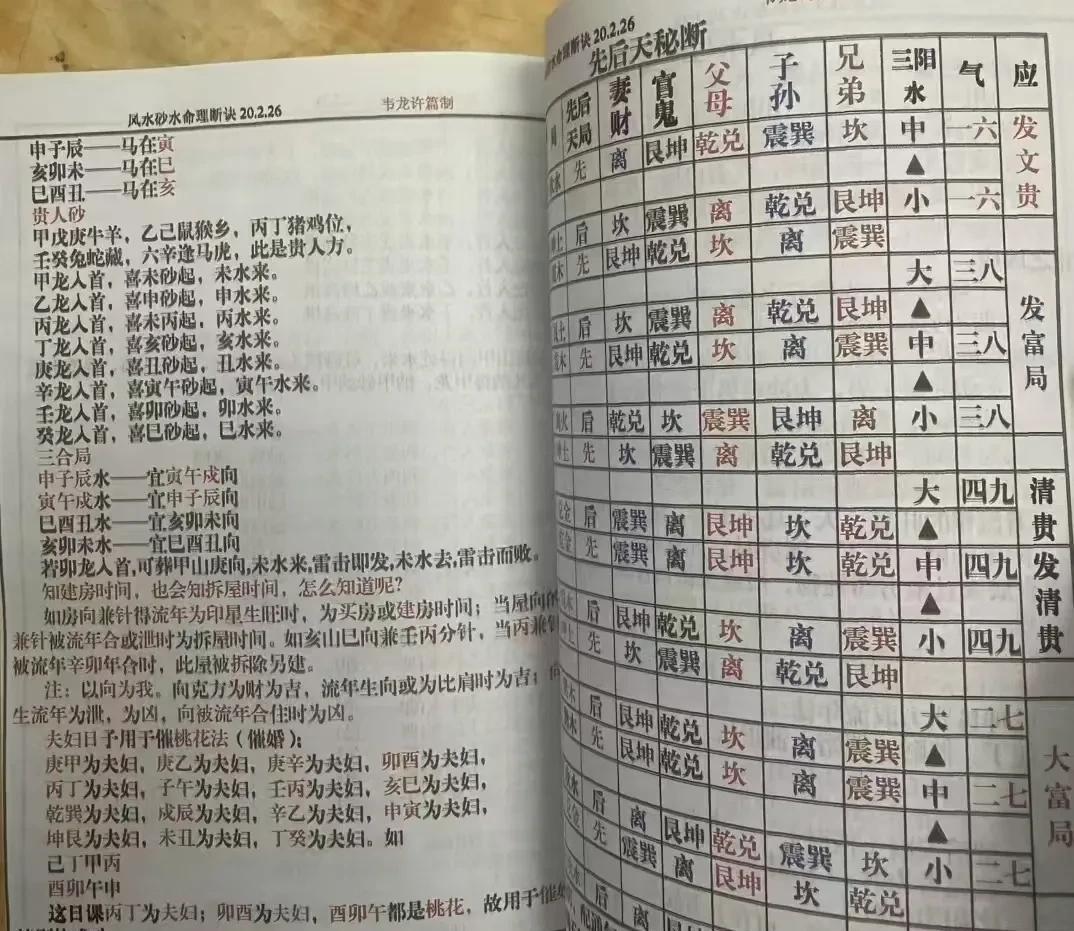 风水砂水命理断诀 20.2.26 韦龙许篇制
申子辰——马在寅
亥卯未——马在巳
巳酉丑——马在亥
贵人砂
甲戊庚牛羊，乙己鼠猴乡，丙丁猪鸡位，
壬癸兔蛇藏，六辛逢马虎，此是贵人方。
甲龙入首，喜未砂起，未水来。
乙龙入首，喜申砂起，申水来。
丙龙入首，喜未丙起，丙水来。
丁龙入首，喜亥砂起，亥水来。
庚龙入首，喜丑砂起，丑水来。
辛龙入首，喜寅午砂起，寅午水来。
壬龙入首，喜卯砂起，卯水来。
癸龙入首，喜巳砂起，巳水来。
三合局
申子辰水——宜寅午戌向
寅午戌水——宜申子辰向
巳酉丑水——宜亥卯未向
亥卯未水——宜巳酉丑向
若卯龙入首，可葬甲山庚向，未水来，雷击即发，未水去，雷击而败。
知建房时间，也会知拆屋时间，怎么知道呢？
如房向兼针得流年为印星生旺时，为买房或建房时间；当屋向的
兼针被流年合或泄时为拆屋时间。如亥山巳向兼壬丙分针，当丙兼针
被流年辛卯年合时，此屋被拆除另建。
注：以向为我。向克方为财为吉，流年生向或为比肩时为吉；向
生流年为泄，为凶，向被流年合住时为凶。
夫妇日子用于催桃花法（催婚）：
庚甲为夫妇，庚乙为夫妇，庚辛为夫妇，卯酉为夫妇，
丙丁为夫妇，子午为夫妇，壬丙为夫妇，亥巳为夫妇，
乾巽为夫妇，戌辰为夫妇，辛乙为夫妇，申寅为夫妇，
坤艮为夫妇，未丑为夫妇，丁癸为夫妇。如
己丁甲丙
酉卯午申
这日课丙丁为夫妇；卯酉为夫妇，酉卯午都是桃花，故用于催
命理断诀 20.2.26
先后天秘断
局 先后天局 妻财 官鬼 父母 子孙 兄弟 三阳水 气 应
水 先 离 艮坤 乾兑 震巽 坎 中 一六 发文贵
▲
土 后 坎 震巽 离 乾兑 艮坤 小 一六
木 先 艮坤 乾兑 坎 离 震巽
大 三八 发富局
土 后 坎 震巽 离 乾兑 艮坤 ▲
木 先 艮坤 乾兑 坎 离 震巽 中 三八
▲
火 后 乾兑 坎 震巽 艮坤 离 小 三八
土 先 坎 震巽 离 乾兑 艮坤
大 四九 清贵
金 后 震巽 离 艮坤 坎 乾兑 ▲
金 先 震巽 离 艮坤 坎 乾兑 中 四九 发清贵
▲
木 后 艮坤 乾兑 坎 离 震巽 小 四九
土 先 坎 震巽 离 乾兑 艮坤
大 二七 大富局
木 后 艮坤 乾兑 坎 离 震巽 ▲
木 先 艮坤 乾兑 坎 离 震巽 中 二七
▲
水 后 离 艮坤 乾兑 震巽 坎 小 二七
金 先 震巽 离 艮坤 坎 乾兑
后 离